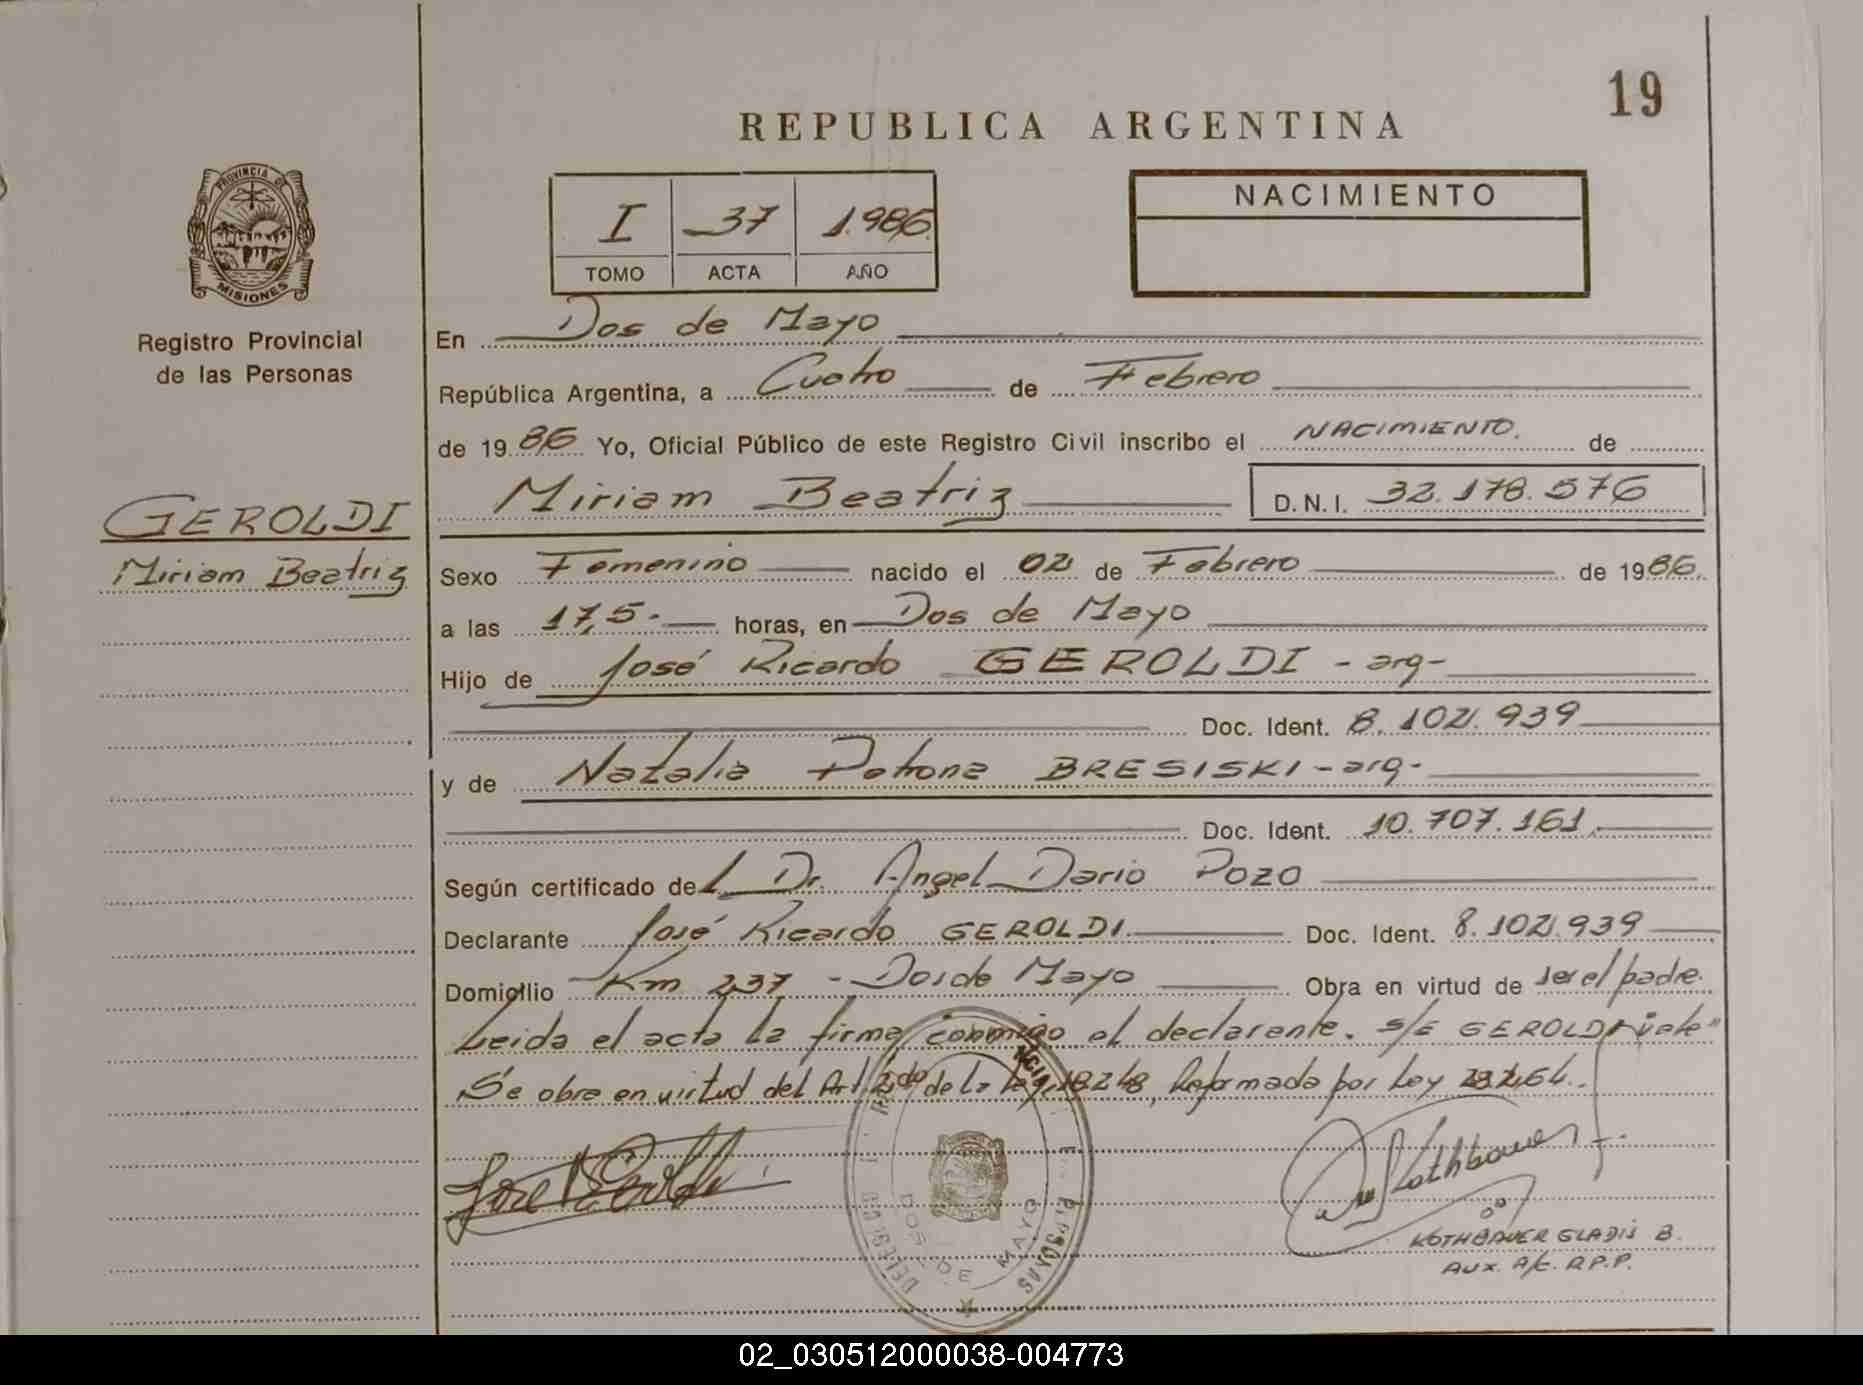 19
REPUBLICA ARGENTINA
PROVINCIA DE
MISIONES
Registro Provincial
de las Personas
I 37 1.986.
TOMO ACTA AÑO
NACIMIENTO
En Dos de Mayo
República Argentina, a Cuatro de Febrero
de 1986 Yo, Oficial Público de este Registro Civil inscribo el NACIMIENTO. de
Miriam Beatriz D.N.I. 32.178.576
GEROLDI
Miriam Beatriz
Sexo Femenino nacido el 02 de Febrero de 1986.
a las 17,5.- horas, en Dos de Mayo
Hijo de José Ricardo GEROLDI - arg-
Doc. Ident. 8.102.939
y de Natalia Petrona BRESISKI - arg-
Doc. Ident. 10.707.161.
Según certificado del Dr. Angel Dario POZO
Declarante José Ricardo GEROLDI. Doc. Ident. 8.102.939
Domicilio Km 237 - Dos de Mayo Obra en virtud de ser el padre.
Leida el acta la firma conmigo el declarente. S/E GEROLDI "vale"
Se obra en virtud del Art. 2do de la Ley 18248, Reformada por Ley
DOS DE MAYO
KOTHBAUER GLADIS B.
AUX. A/C. R.P.P.
02_030512000038-004773